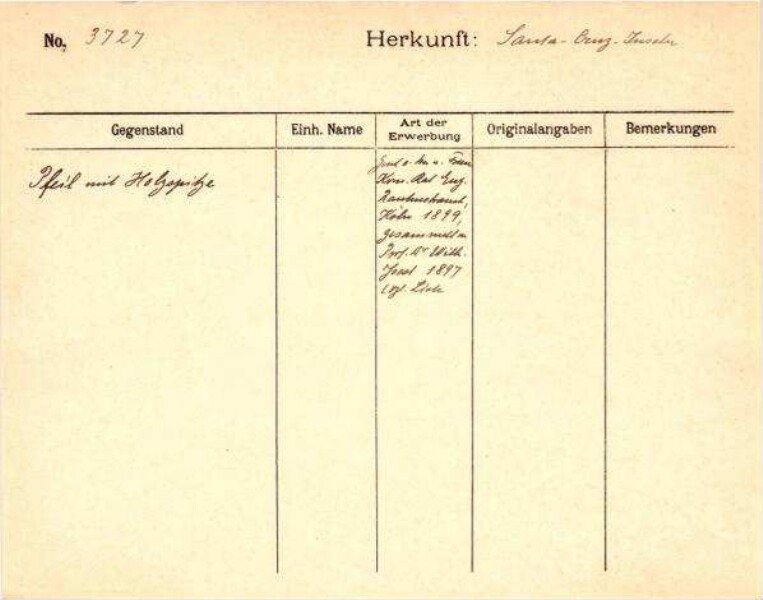 No. 3727 Herkunft: Santa-Cruz-Inseln
Gegenstand Einh. Name Art der Erwerbung Originalangaben Bemerkungen
Pfeil mit Holzspitze
Gesch. v. Hn u. Frau
Kom. Rat Eug.
Rautenstrauch,
Köln 1899,
gesammelt v.
Prof. Dr Wilh.
Joest 1897
vgl. Liste